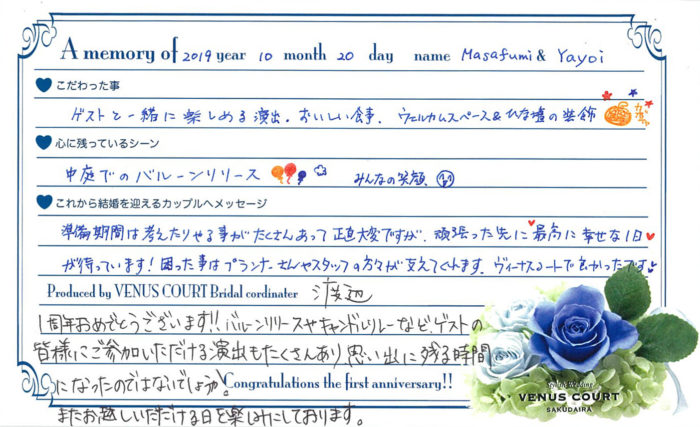 A memory of 2019 year 10 month 20 day name Masafumi & Yayoi
こだわった事
ゲストと一緒に楽しめる演出。おいしい食事、ウェルカムスペース&ひな壇の装飾
心に残っているシーン
中庭でのバルーンリリース みんなの笑顔
これから結婚を迎えるカップルへメッセージ
準備期間は考えたりやる事がたくさんあって正直大変ですが、頑張った先に最高に幸せな1日
が待っています!困った事はプランナーさんやスタッフの方々が支えてくれます。ヴィーナスコートで良かったです
Produced by VENUS COURT Bridal cordinater 渡辺
1周年おめでとうございます!!バルーンリリースやキャンドルリレーなど、ゲストの
皆様にご参加いただける演出もたくさんあり思い出に残る時間
になったのではないでしょうか!
Congratulations the first anniversary!!
またお越しいただける日を楽しみにしております。
VENUS COURT
SAKUDAIRA